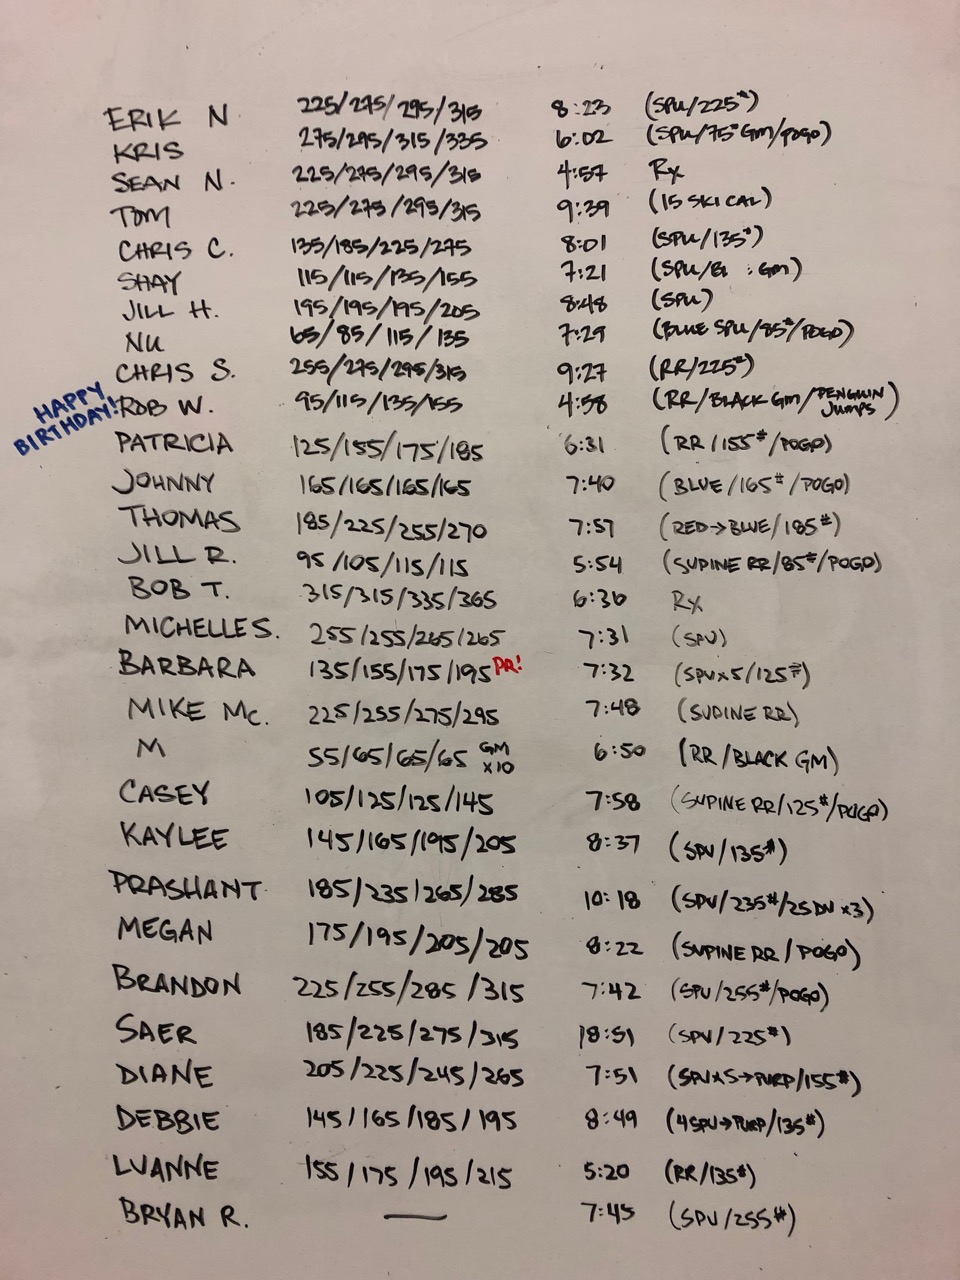 ERIK N 225/275/295/315 8:23 (SPU/225#)
KRIS 275/295/315/335 6:02 (SPU/75# GM/POGO)
SEAN N. 225/275/295/315 4:57 Rx
TOM 225/275/295/315 9:39 (15 SKI CAL)
CHRIS C. 135/185/225/275 8:01 (SPU/135#)
SHAY 115/115/135/155 7:21 (SPU/BL : GM)
JILL H. 195/195/195/205 8:48 (SPU)
NU 65/85/115/135 7:29 (BLUE SPU/85#/POGO)
CHRIS S. 255/275/295/315 9:27 (RR/225#)
HAPPY BIRTHDAY! ROB W. 95/115/135/155 4:58 (RR/BLACK GM/PENGUIN JUMPS)
PATRICIA 125/155/175/185 6:31 (RR/155#/POGO)
JOHNNY 165/165/165/165 7:40 (BLUE/165#/POGO)
THOMAS 185/225/255/270 7:57 (RED→BLUE/185#)
JILL R. 95/105/115/115 5:54 (SUPINE RR/85#/POGO)
BOB T. 315/315/335/365 6:36 Rx
MICHELLE S. 255/255/265/265 7:31 (SPU)
BARBARA 135/155/175/195 PR! 7:32 (SPUx5/125#)
MIKE Mc. 225/255/275/295 7:48 (SUPINE RR)
M 55/65/65/65 GM x10 6:50 (RR/BLACK GM)
CASEY 105/125/125/145 7:58 (SUPINE RR/125#/POGO)
KAYLEE 145/165/195/205 8:37 (SPU/135#)
PRASHANT 185/235/265/285 10:18 (SPU/235#/25DU x3)
MEGAN 175/195/205/205 8:22 (SUPINE RR/POGO)
BRANDON 225/255/285/315 7:42 (SPU/255#/POGO)
SAER 185/225/275/315 18:51 (SPU/225#)
DIANE 205/225/245/265 7:51 (SPUx5→PURP/155#)
DEBBIE 145/165/185/195 8:49 (4SPU→PURP/135#)
LUANNE 155/175/195/215 5:20 (RR/135#)
BRYAN R. — 7:45 (SPU/255#)